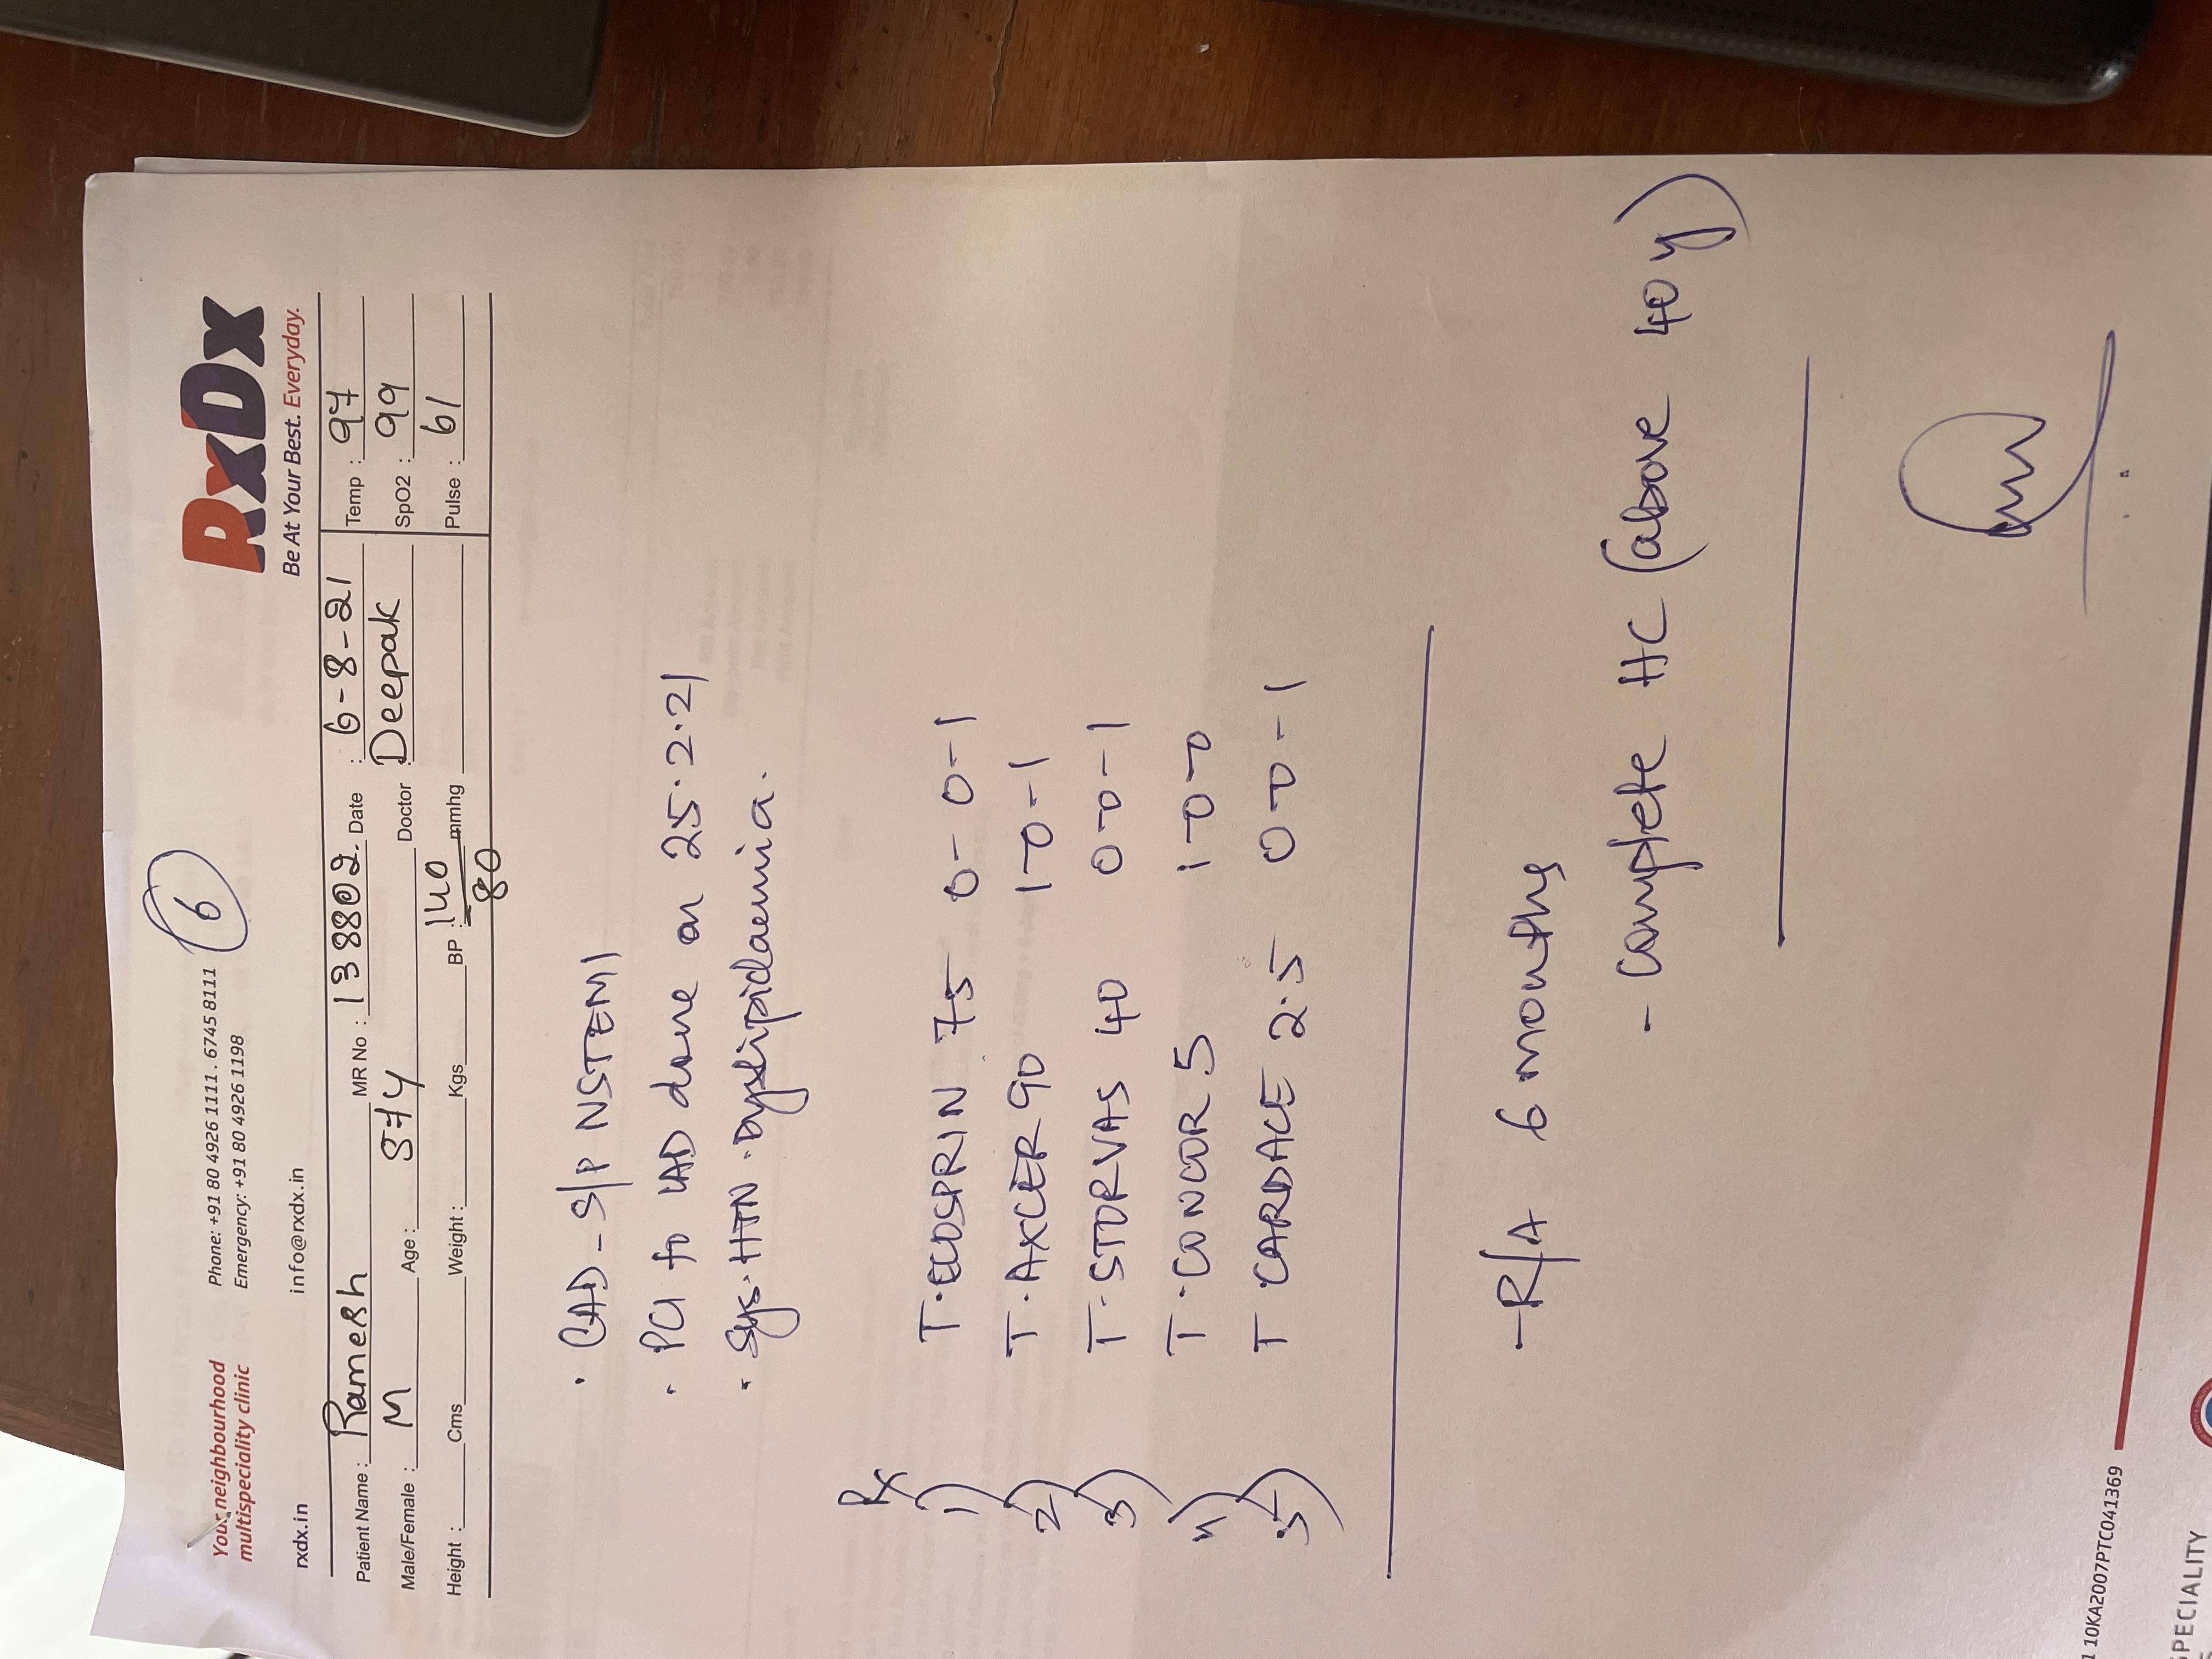 Your neighbourhood
multispeciality clinic
Phone: +91 80 4926 1111 . 6745 8111
Emergency: +91 80 4926 1198
6
RxDx
Be At Your Best. Everyday.
rxdx.in info@rxdx.in
Patient Name : Ramesh MR No : 138802. Date : 6-8-21 Temp : 97
Male/Female : M Age : 57y Doctor : Deepak SpO2 : 99
Height : Cms Weight : Kgs BP : 140/80 mmhg Pulse : 61
· CAD - S/P NSTEMI
· PCI to LAD done on 25.2.21
· Sys. HTN . Dyslipidaemia.
Rx
1) T. ECOSPRIN 75 0-0-1
2) T. AXCER 90 1-0-1
3) T. STORVAS 40 0-0-1
4) T. CONCOR 5 1-0-0
5) T CARDACE 2.5 0-0-1
- R/A 6 months
- complete HC (above 40y)
10KA2007PTC041369
SPECIALITY